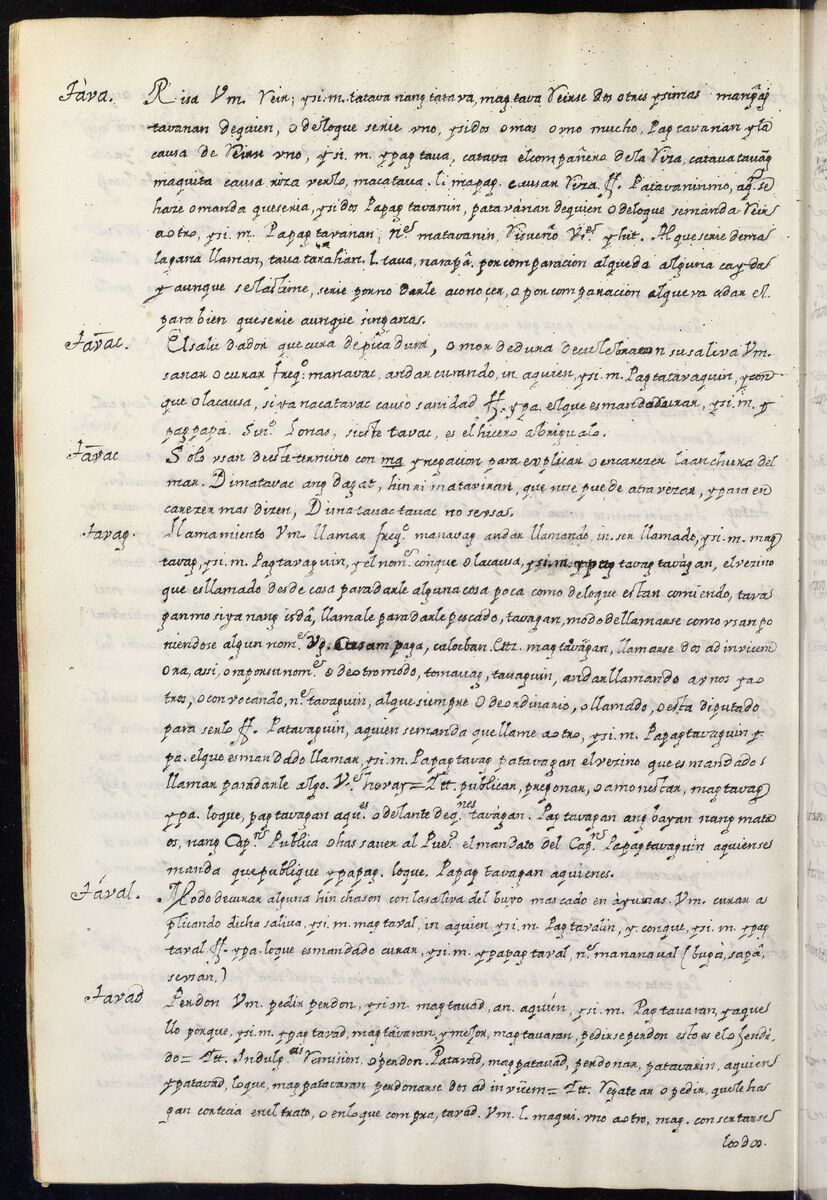 Tàva. Risa Vm. Reir; ysi.m. tatava nang tatava, magtava Reirse dos otres ysimas mangag
tavanan dequien, o deloque serie vno, ysidos omas, omo mucho, Pagtavanan yla
causa de Reirse vno, ysi.m. ypag tava, catava elcompañero dela Riza, catavatavag
maquita causa riza verlo, macatava. li mapag. causar Riza. ff. Patavaninmo, aq.n se
haze omanda queseria, ysidos Papagtavanin, patavánan dequien odeloque semanda Reir
aotro, ysi.m. Papagtavanan; n.es matavanin, Risueño V.es yhit. Alqueserie demas
lagana llaman, tava tavahan. l. tava, narapâ. por comparacion alqueda alguna cayda
y aunque selastime, serie porno darle aconoçer, o por comparacion alqueva adar el
parabien queserie aunque singanas.
Tavac. El salu dador que cura depicadura, o mordedura deculebra con su saliva Vm.
sanar ocurar freq.o manavac, andar curando, in. aquien, ysi.m. Pagtatavaquin, ycon
que olacausa, siya nacatavac causò sanidad ff. ypa. elque esmandado curar, ysi.m. y
pagpapa. Sin.o Lonas, sieste tavac, es el hicero abrigualo.
Tavac Solo vsan deeste termino con ma ynegacion para explicar o encarezer laanchura del
mar. Dimatavac ang dagat, hin ri mataviran, que nose puede atravezar, ypara en
carezer mas dizen, Dima tavac tavac no sevsas.
tavag. Llamamiento Vm. llamar freq.o manavag andar llamando, in. ser llamado, ysi.m. mag
tavag, ysi.m. Pagtavaguin, yel nom.e conque olacausa, ysi.m. ypag tavag tavàgan, elvezino
que esllamado desde casa paradarle alguna cosa poca como deloque estan comiendo, tava
ganmo siya nang isdâ, llamale para darle pescado, tavagan, modo dellamarse como vsan po
niendose algun nom.e Vg. Casam paga, calocban. Ett. magtavàgan, llamarse dos ad invicem
ora, assi, orapor su nom.e o deotro modo, tomavag, tavaguin, andar llamando avnos ya o
tros, o convocando, n.e tavaguin, alque siempre o de ordinario, o llamado, o está diputado
para serlo ff. Patavaguin, aquien semanda quellame aotro, ysi.m. Papagtavaguin y.
pa. elque esmandado llamar, ysi.m. Papagtavag patavagan elvezino que esmandado
llamar paradarle algo. V.e hovag = Itt. publicar, pregonar, o amonestar, magtavag
ypa. loque, pagtavagan aqu.es odelante deq.nes tavàgan. Pagtavagan ang bayan nang mata
os, nang Cap.n Publica o has saver al Pue.o el mandato del Cap.n Papagtavaguin aquiense
manda que publique ypapag. loque. Papag tavagan aquienes.
Tával. Modo decurar alguna hinchason con lasaliva del buyo mascado en àyunas. Vm. curar a
plicando dicha saliva, ysi.m. magtaval, in aquien ysi.m. Pagtavalin, y. conque, ysi.m. ypag
taval ff. ypa. loque esmandado curar, ysi.m. ypapag taval, n.e mananaval (bugà, sapâ,
sevsan.)
Tavad Perdon Vm. pedir perdon, ysi.m. magtavad, an. aquièn, ysi.m. Pagtavaran, yaque
llo porque, ysi.m. ypagtavad, magtavaran, ymejor, magtavaran, pedirse perdon esto es elofendi
do = Itt. Indulg.as Remision, o perdon. Patavad, magpatavad, perdonar, patavarin, aquien
ypatavàd, loque, magpatavaran perdonarse dos ad invicem = Itt. Regatear o pedir, quele ha
gan cortecia enel trato, o enloque compra, tavàd. Vm. l. magui. vno aotro, mag. consertarse
los dos.